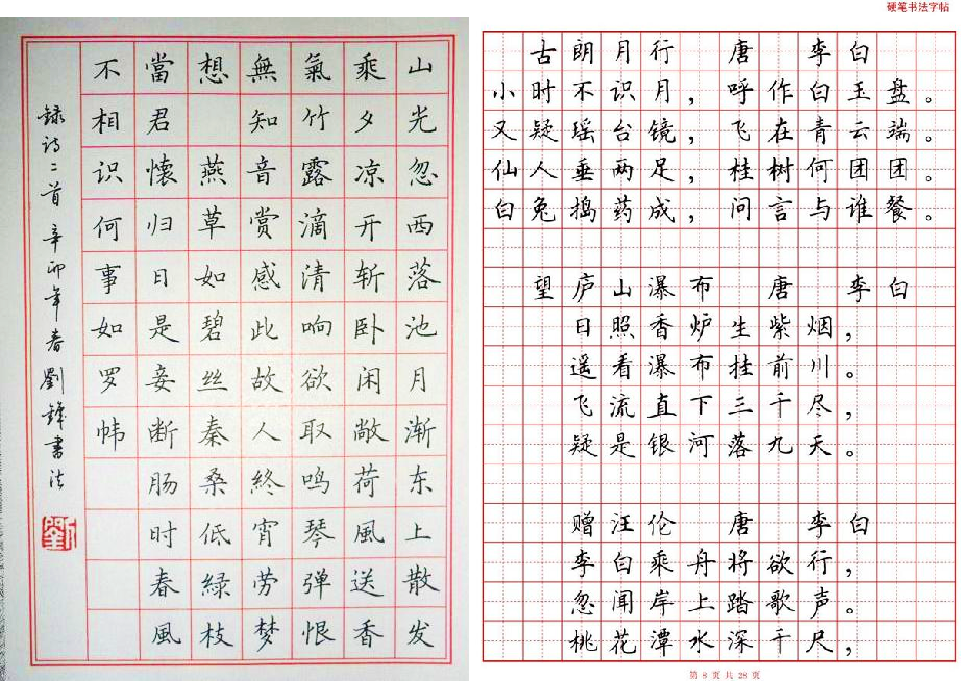 山光忽西落池月渐东上散发
乘夕凉开斩卧闲敞荷風送香
氣竹露滴清响欲取鸣琴弹恨
無知音赏感此故人終宵劳梦
想 燕草如碧丝秦桑低緑枝
當君懷归日是妾断肠时春風
不相识何事如罗帏
録诗二首 辛卯年春 劉 書法
劉
硬笔书法字帖
古朗月行 唐 李白
小时不识月，呼作白玉盘。
又疑瑶台镜，飞在青云端。
仙人垂两足，桂树何团团。
白兔捣药成，问言与谁餐。
望庐山瀑布 唐 李白
日照香炉生紫烟，
遥看瀑布挂前川。
飞流直下三千尽，
疑是银河落九天。
赠汪伦 唐 李白
李白乘舟将欲行，
忽闻岸上踏歌声。
桃花潭水深千尺，
第 8 页 共 28 页